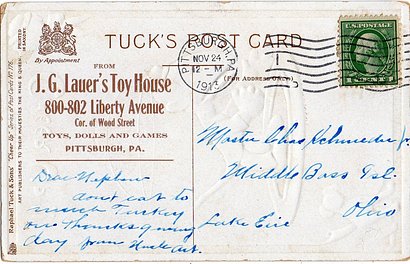 TUCK'S POST CARD
By Appointment
FROM
J. G. Lauer's Toy House
800-802 Liberty Avenue
Cor. of Wood Street
TOYS, DOLLS AND GAMES
PITTSBURGH, PA.
(FOR ADDRESS ONLY)
PITTSBURGH, PA.
NOV 24
12-M
1913
U.S. POSTAGE
1 CENT 1
Dear Nephew
dont eat to
much Turkey
on Thanksgiving
day from Uncle Art.
Master Chas Schneider Jr.
Middle Bass Isl.
Lake Erie
Ohio
Raphael Tuck & Sons' "Cheer Up" Series of Post Cards No.
ART PUBLISHERS TO THEIR MAJESTIES THE KING & QUEEN
PRINTED
IN SAXONY